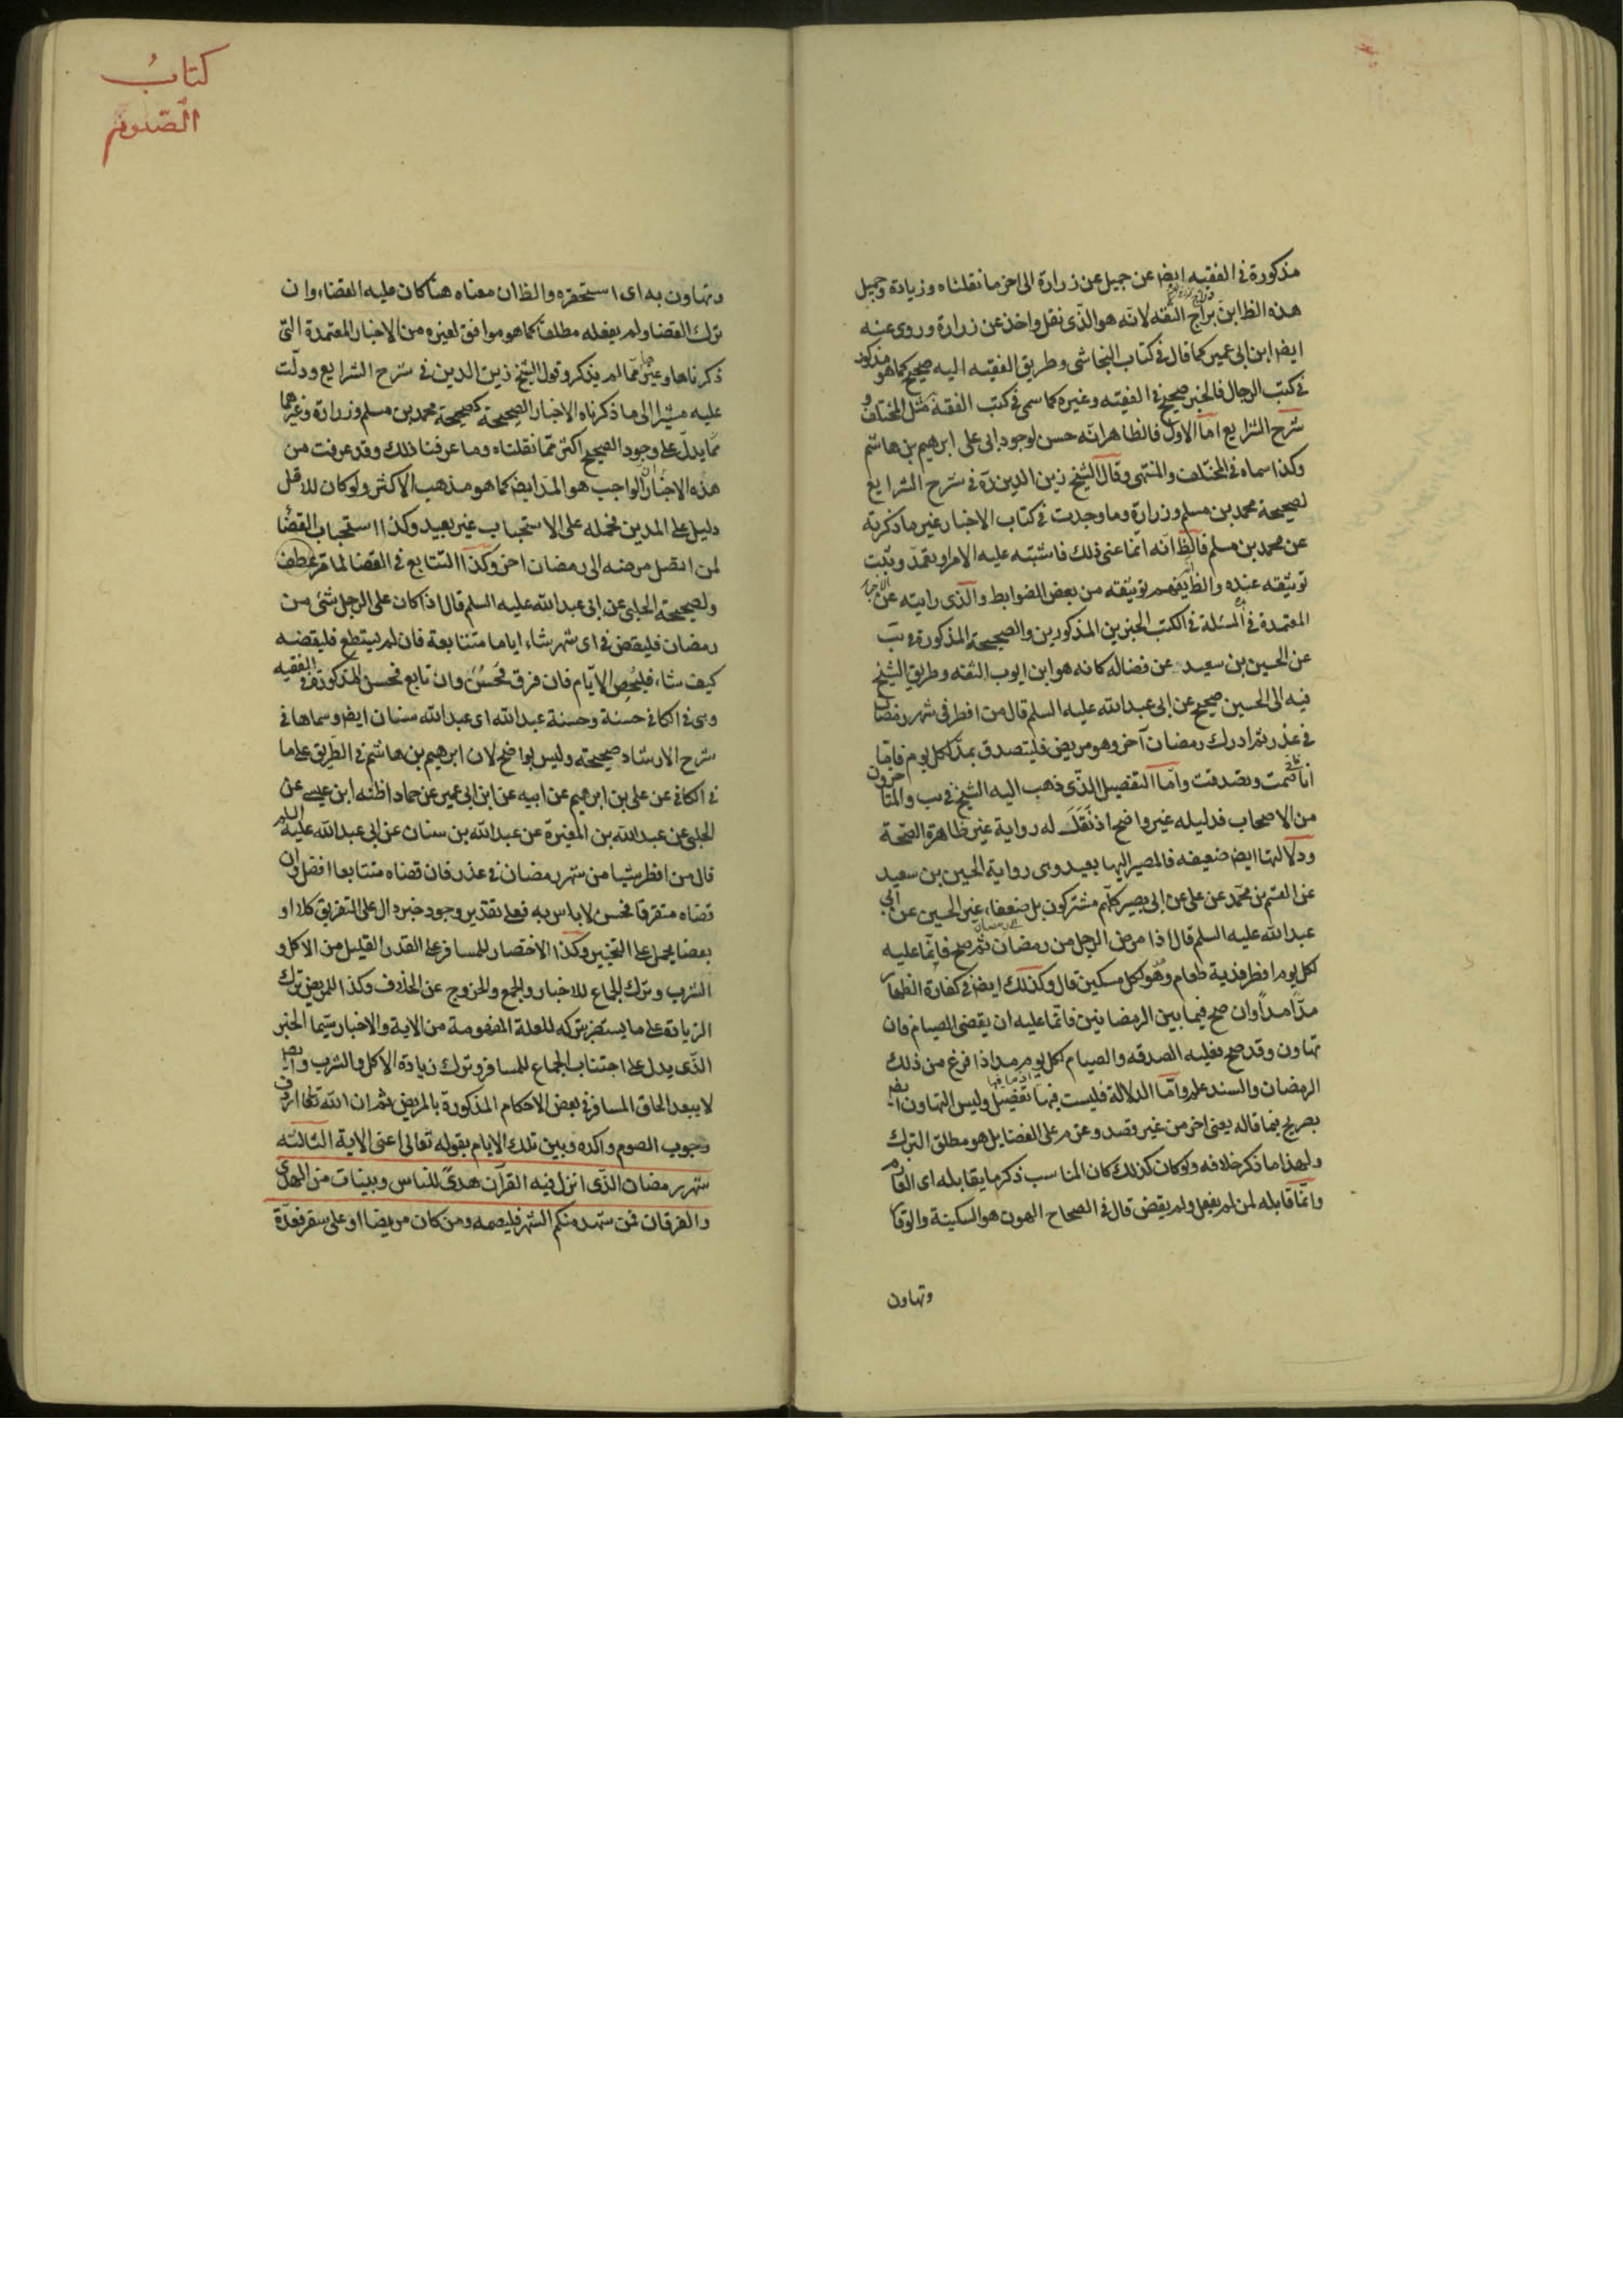 مذكورة في الفقيه ايضا عن جميل عن زرارة الى اخر ما نقلناه وزيادة وجميل
هذه الظ ابن براج الثقه لانه هو الذى نقل واخذ عن زرارة وروى عنه
ايضا ابن ابى عمير كما قال في كتاب النجاشى وطريق الفقيه اليه صحيح كما هو مذكور
في كتب الرجال فالخبر صحيح في الفقيه وغيره كما سمى في كتب الفقه مثل المختلف و
شرح الشرايع اما الاول فالظاهر انه حسن لوجود ابى على ابرهيم بن هاشم
وكذا سماه في المختلف والمنتهى وقال الشيخ زين الدين ره في شرح الشرايع
لصحيحة محمد بن مسلم وزرارة وما وجدت في كتاب الاخبار غير ما ذكرته
عن محمد بن مسلم فالظ انه انما عنى ذلك فاشتبه عليه الامر او تعمد وثبت
توثيقه عنده والظ يفهم توثيقه من بعض الضوابط والذى رايته عن
المعتمدة في المسئلة في الكتب الخبرين المذكورين والصحيحة المذكورة في يب
عن الحسين بن سعيد عن فضاله كانه هو ابن ايوب الثقه وطريق الشيخ
فيه الى الحسين صحيح عن ابى عبد الله عليه السلم قال من افطر في شهر رمضان
في عذر ثم ادرك رمضان آخر وهو مريض فليتصدق بمد لكل يوم فاما
انا فانى صمت وتصدقت واما التفصيل الذى ذهب اليه الشيخ في يب والمتاخرون
من الاصحاب فدليله غير واضح اذ نقل له رواية غير ظاهرة الصحة
ودلالتها ايضا ضعيفه فالمصير اليها بعيد وهى رواية الحسين بن سعيد
عن القسم بن محمد عن على عن ابى بصير كلهم مشتركون بل ضعفاء غير الحسين عن ابى
عبد الله عليه السلم قال اذا مرض الرجل من رمضان الى رمضان ثم صح فانما عليه
لكل يوم افطر فدية طعام وهو لكل مسكين قال وكذلك ايضا في كفارة الظهار
مدا مدا وان صح فيما بين الرمضانين فانما عليه ان يقضى الصيام فان
تهاون وقد صح فعليه الصدقه والصيام لكل يوم مد اذا فرغ من ذلك
الرمضان والسند علم واما الدلالة فليست فيها تفصيل وليس التهاون ايضا
بصريح فيما قاله يعنى اخر من غير قصد وعزم على القضا بل هو مطلق الترك
ولهذا ما ذكر خلافه ولو كان كذلك كان المناسب ذكر ما يقابله اى القازم
وانما قابله لمن لم يفعل ولم يقض قال في الصحاح الهون هو السكينة والوقار
وتهاون
كتابُ
الصّوم
وتهاون به اى استحقره والظ ان معناه هنا كان عليه القضاء وان
ترك القضا ولم يفعله مطلقا كما هو موافق لغيره من الاخبار المعتمدة التى
ذكرناها وغيرها مما لم يذكر وقول الشيخ زين الدين في شرح الشرايع ودلت
عليه مشيرا الى ما ذكرناه الاخبار الصحيحة كصحيحة محمد بن مسلم وزرارة وغيرهما
مما يدل على وجود الصحيح اكثر مما نقلناه وما عرفنا ذلك وقد عرفت من
هذه الاخبار ان الواجب هو المد ايضا كما هو مذهب الاكثر ولو كان للاقل
دليل على المدين نحمله على الاستحباب غير بعيد وكذا استحباب القضا
لمن اتصل مرضه الى رمضان اخر وكذا التتابع في القضا لما مر
ولصحيحة الحلبى عن ابى عبد الله عليه السلم قال اذا كان على الرجل شئ من
رمضان فليقض في اى شهر شاء اياما متتابعة فان لم يستطع فليقضه
كيف شاء فليحص الايام فان فرق فحسن وان تابع فحسن المذكورة في الفقيه
وهى في الكافى حسنة وحسنة عبد الله اى عبد الله سنان ايضا وسماها في
شرح الارشاد صحيحته وليس بواضح لان ابرهيم بن هاشم في الطريق على ما
في الكافى عن على بن ابرهيم عن ابيه عن ابن ابى عمير عن حماد اظنه ابن عيسى عن
الحلبى عن عبد الله بن المغيرة عن عبد الله بن سنان عن ابى عبد الله عليه السلم
قال من افطر شيئا من شهر رمضان في عذر فان قضاه متتابعا افضل وان
قضاه متفرقا فحسن لا باس به فعلى تقدير وجود خبر دال على التفريق كلا او
بعضا يحمل على التخيير وكذا الاختصار للمسافر على القدر القليل من الاكل و
الشرب وترك الجماع للاخبار والجمع والخروج عن الخلاف وكذا للمريض ترك
الزيادة على ما يستضر بتركه للعلة المفهومة من الاية والاخبار سيما الخبر
الذى يدل على اجتناب الجماع للمسافر وترك زيادة الاكل والشرب وايضا
لا يبعد الحاق المسافر في بعض الاحكام المذكورة بالمريض ثم ان الله تعالى
وجوب الصوم واكده وبين تلك الايام بقوله تعالى اعنى الاية الثالثه
شهر رمضان الذى انزل فيه القرآن هدى للناس وبينات من الهدى
والفرقان فمن شهد منكم الشهر فليصمه ومن كان مريضا او على سفر فعدة